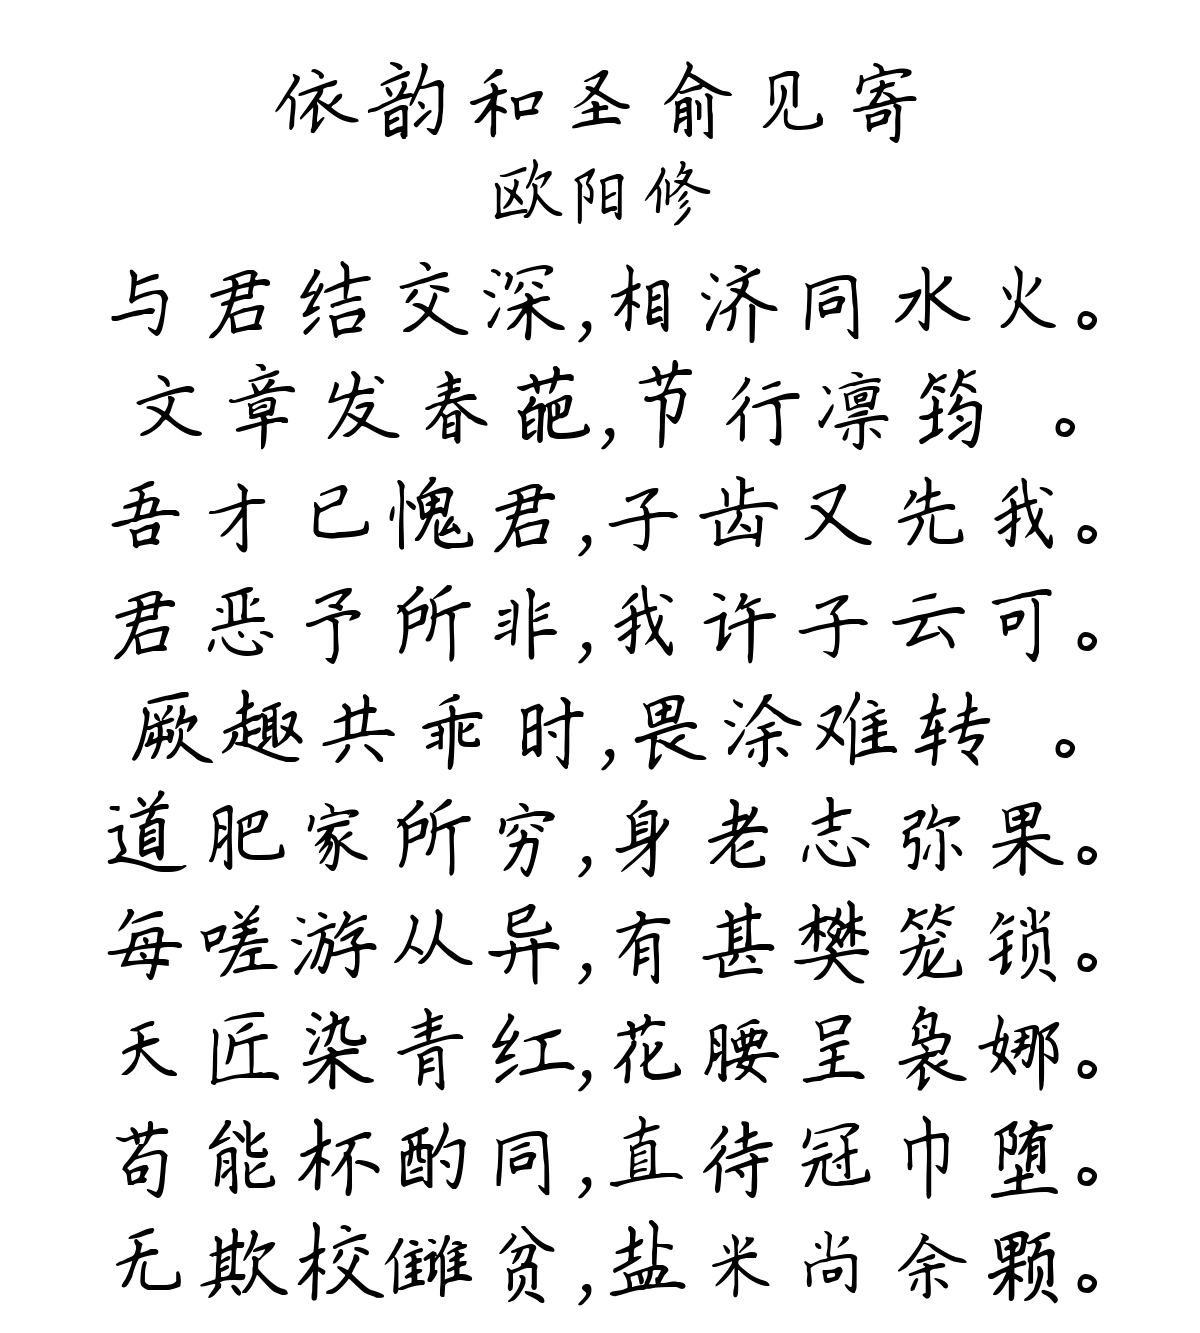 依韵和圣俞见寄
欧阳修
与君结交深,相济同水火。
文章发春葩,节行凛筠 。
吾才已愧君,子齿又先我。
君恶予所非,我许子云可。
厥趣共乖时,畏涂难转 。
道肥家所穷,身老志弥果。
每嗟游从异,有甚樊笼锁。
天匠染青红,花腰呈袅娜。
苟能杯酌同,直待冠巾堕。
无欺校雠贫,盐米尚余颗。